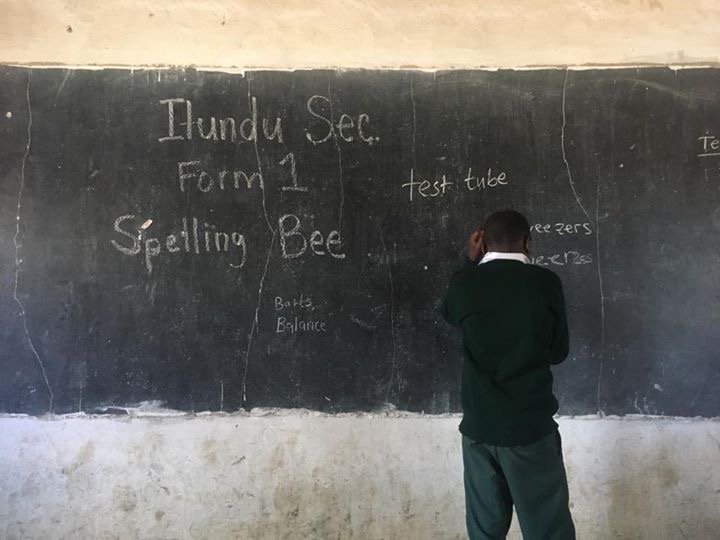 Ilundu Sec.
Form 1
Spelling Bee
test tube
eezers
Balance
Te